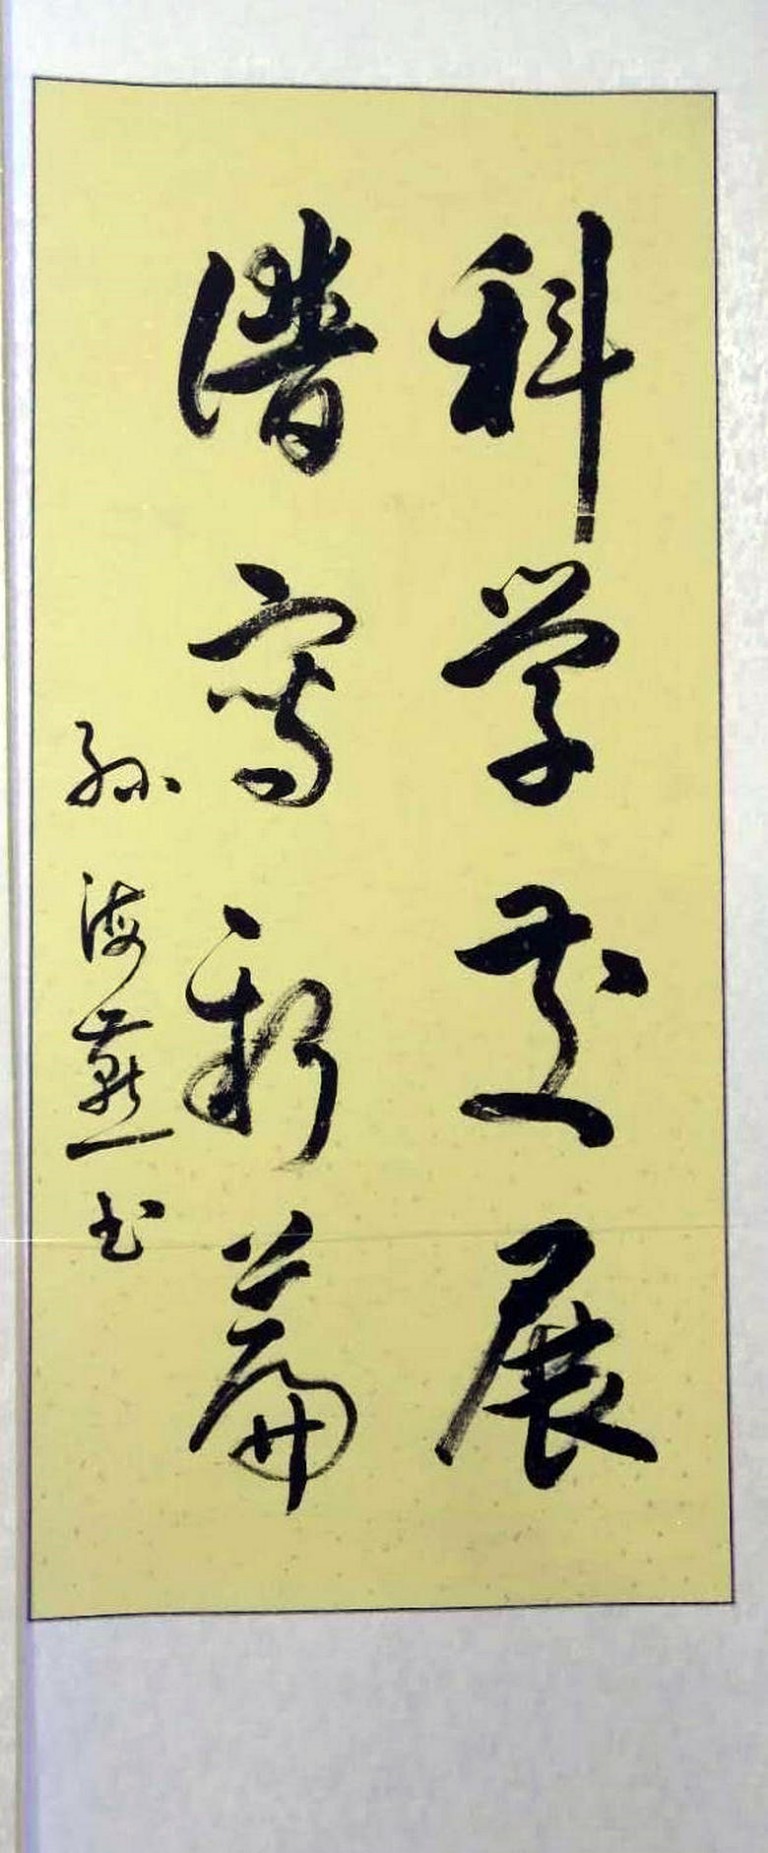 科学发展
谱写新篇
孙海燕书